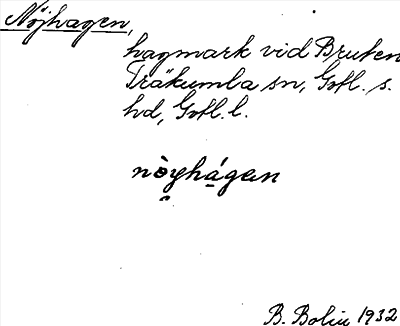 Nöjhagen,
hagmark vid Bruten
Träkumla sn, Gotl. s.
hd, Gotl. l.
nòyhágan
B. Bolin 1932